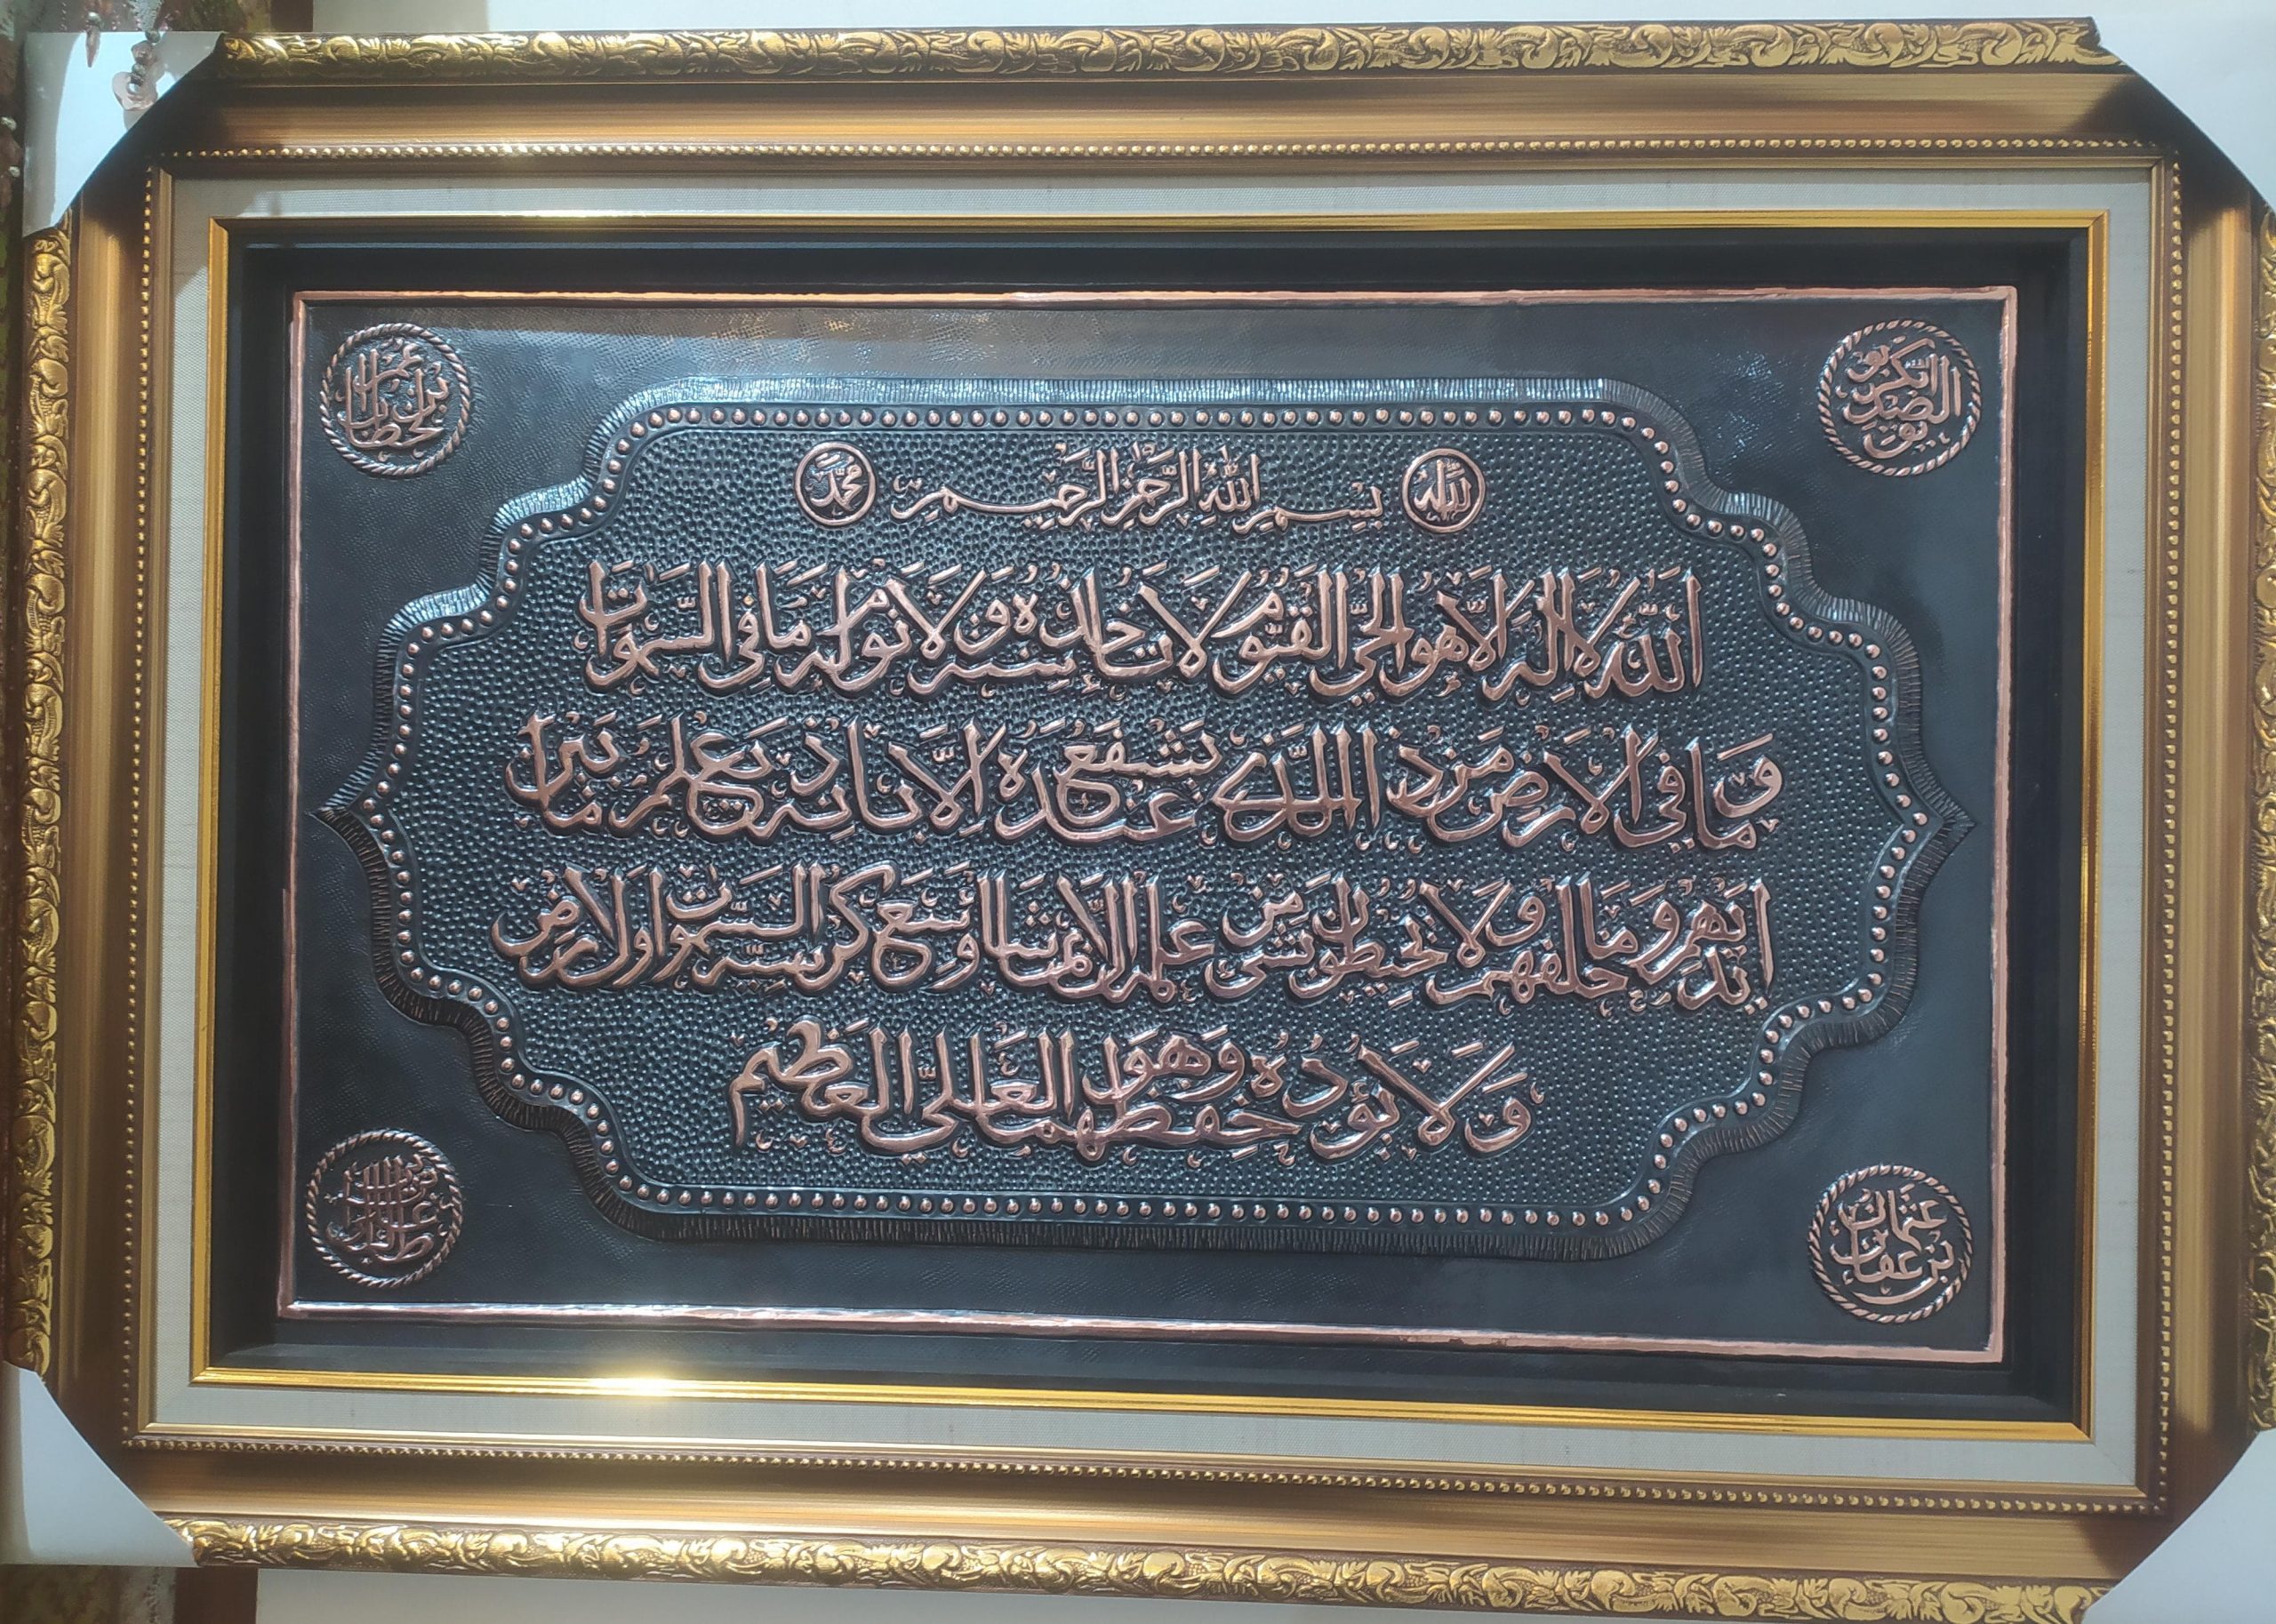 ابو بكر الصديق
عمر بن الخطاب
الله بسم الله الرحمن الرحيم محمد
الله لا اله الا هو الحي القيوم لا تاخذه سنة ولا نوم له ما في السموات
وما في الارض من ذا الذي يشفع عنده الا باذنه يعلم ما بين
ايديهم وما خلفهم ولا يحيطون بشئ من علمه الا بما شاء وسع كرسيه السموات والارض
ولا يؤده حفظهما وهو العلي العظيم
عثمان بن عفان